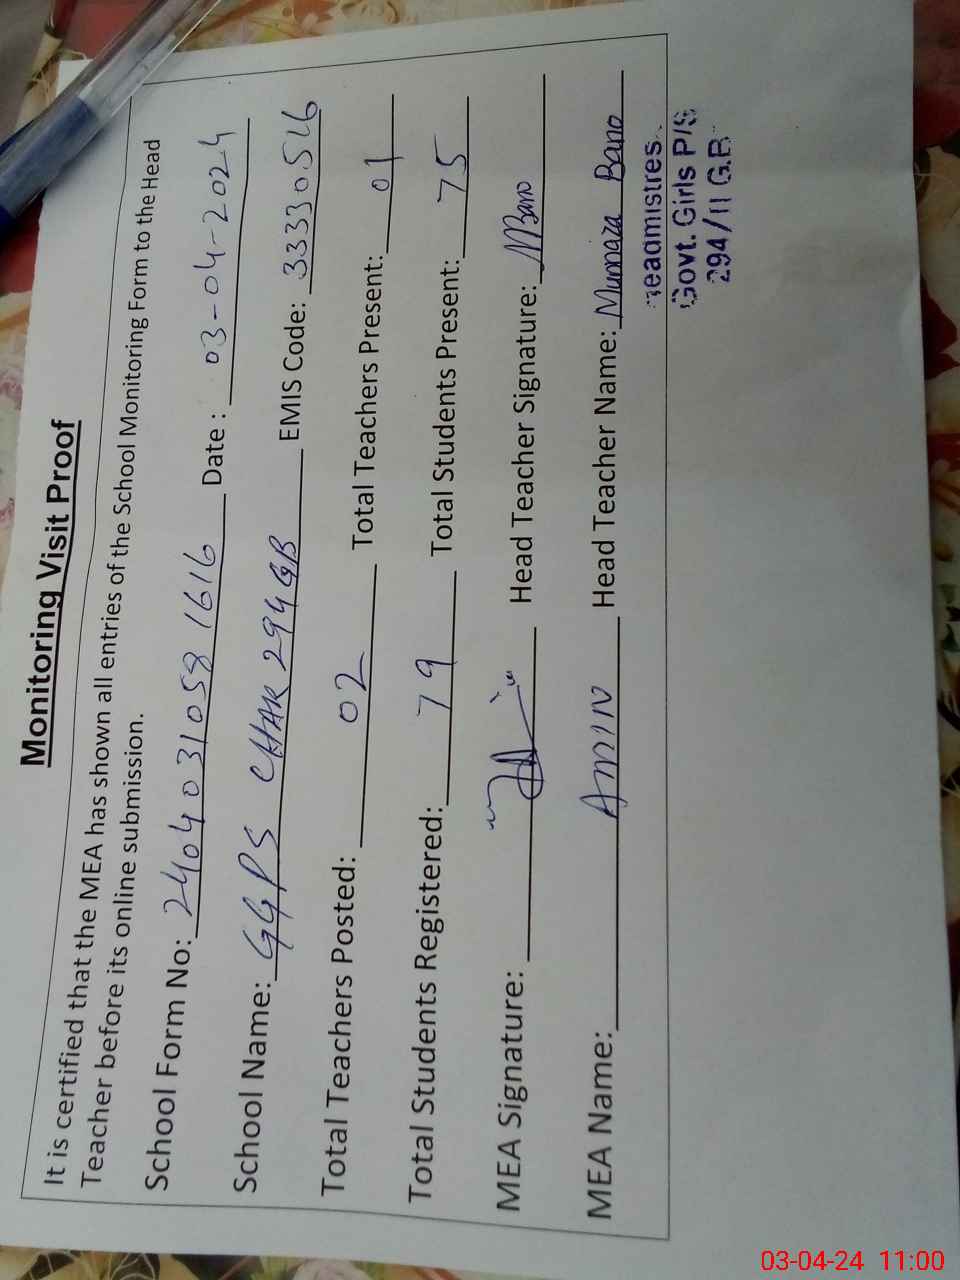 Monitoring Visit Proof
It is certified that the MEA has shown all entries of the School Monitoring Form to the Head
Teacher before its online submission.
School Form No: 2404031058 1616 Date : 03-04-2024
School Name: GGPS CHAK 294 GB EMIS Code: 33330516
Total Teachers Posted: 02 Total Teachers Present: 01
Total Students Registered: 79 Total Students Present: 75
MEA Signature: Head Teacher Signature: MBano
MEA Name: AMIN Head Teacher Name: Mumaza Bano
eadmistres
Govt. Girls P/S
294/11 G.B.
03-04-24 11:00